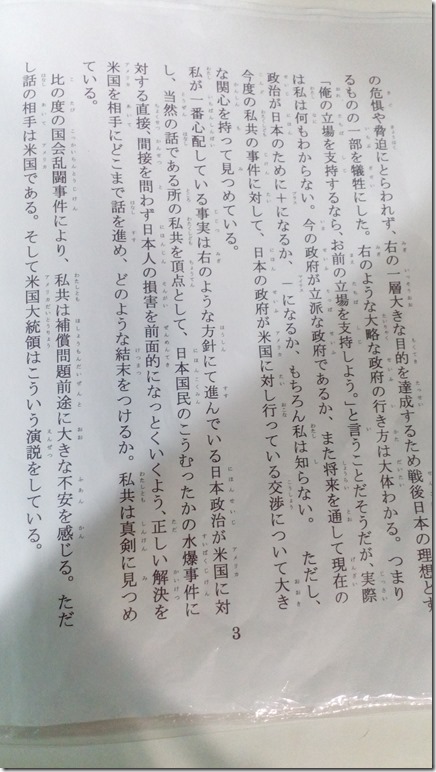 の危惧や脅迫にとらわれず、右の一層大きな目的を達成するため戦後日本の理想とす
るものの一部を犠牲にした。右のような大略な政府の行き方は大体わかる。つまり
「俺の立場を支持するなら、お前の立場を支持しよう。」と言うことだそうだが、実際
は私は何もわからない。今の政府が立派な政府であるか、また将来を通して現在の
政治が日本のために＋になるか、－になるか、もちろん私は知らない。　ただし、
今度の私共の事件に対して、日本の政府が米国に対し行っている交渉について大き
な関心を持って見つめている。
私が一番心配している事実は右のような方針にて進んでいる日本政治が米国に対
し、当然の話である所の私共を頂点として、日本国民のこうむったかの水爆事件に
対する直接、間接を問わず日本人の損害を前面的になっとくいくよう、正しい解決を
米国を相手にどこまで話を進め、どのような結末をつけるか。　私共は真剣に見つめ
ている。
比の度の国会乱闘事件により、私共は補償問題前途に大きな不安を感じる。ただ
し話の相手は米国である。そして米国大統領はこういう演説をしている。
3